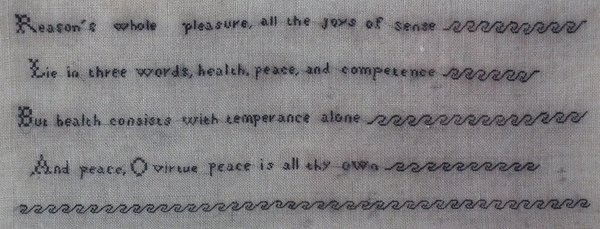 Reason's whole pleasure, all the joys of sense
Lie in three words, health, peace, and competence
But health consists with temperance alone
And peace, O virtue peace is all thy own